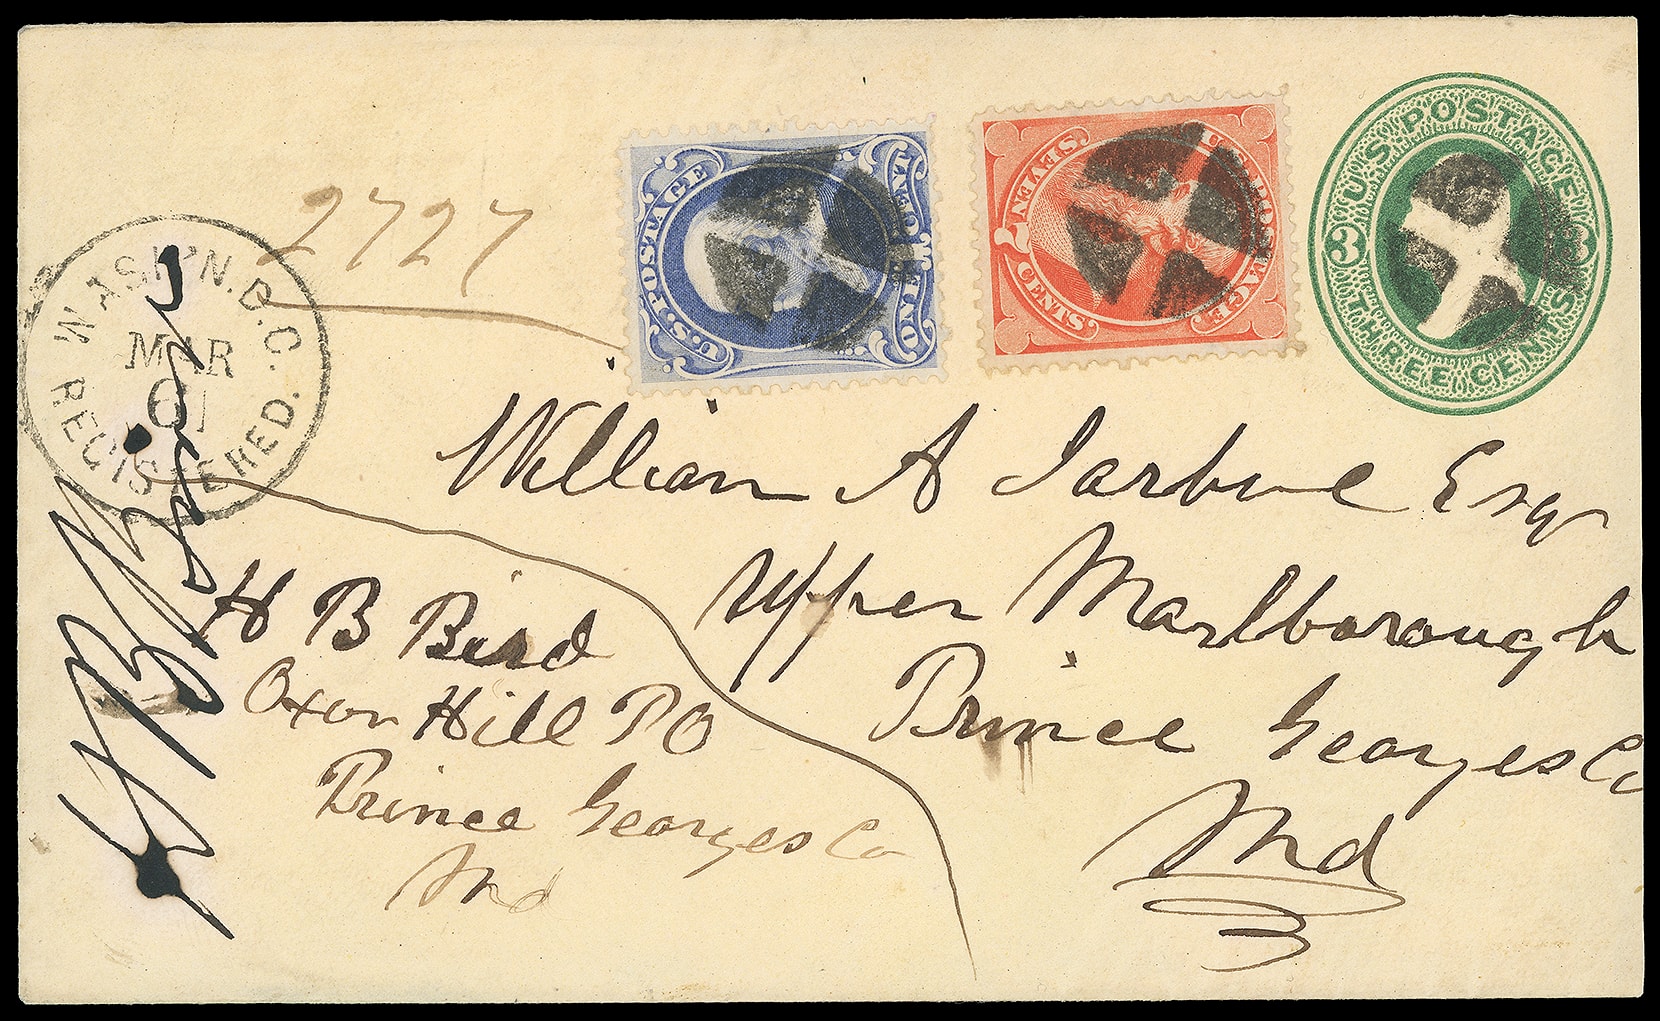 2727
WASH'N. D.C.
MAR
01
REGISTERED.
U.S. POSTAGE
ONE CENT
U.S. POSTAGE
SEVEN 7 CENTS
U S POSTAGE
3 3
THREE CENTS
William A Jarboe Esq
Upper Marlborough
Prince Georges Co
Md
H B Bird
Oxon Hill PO
Prince Georges Co
Md